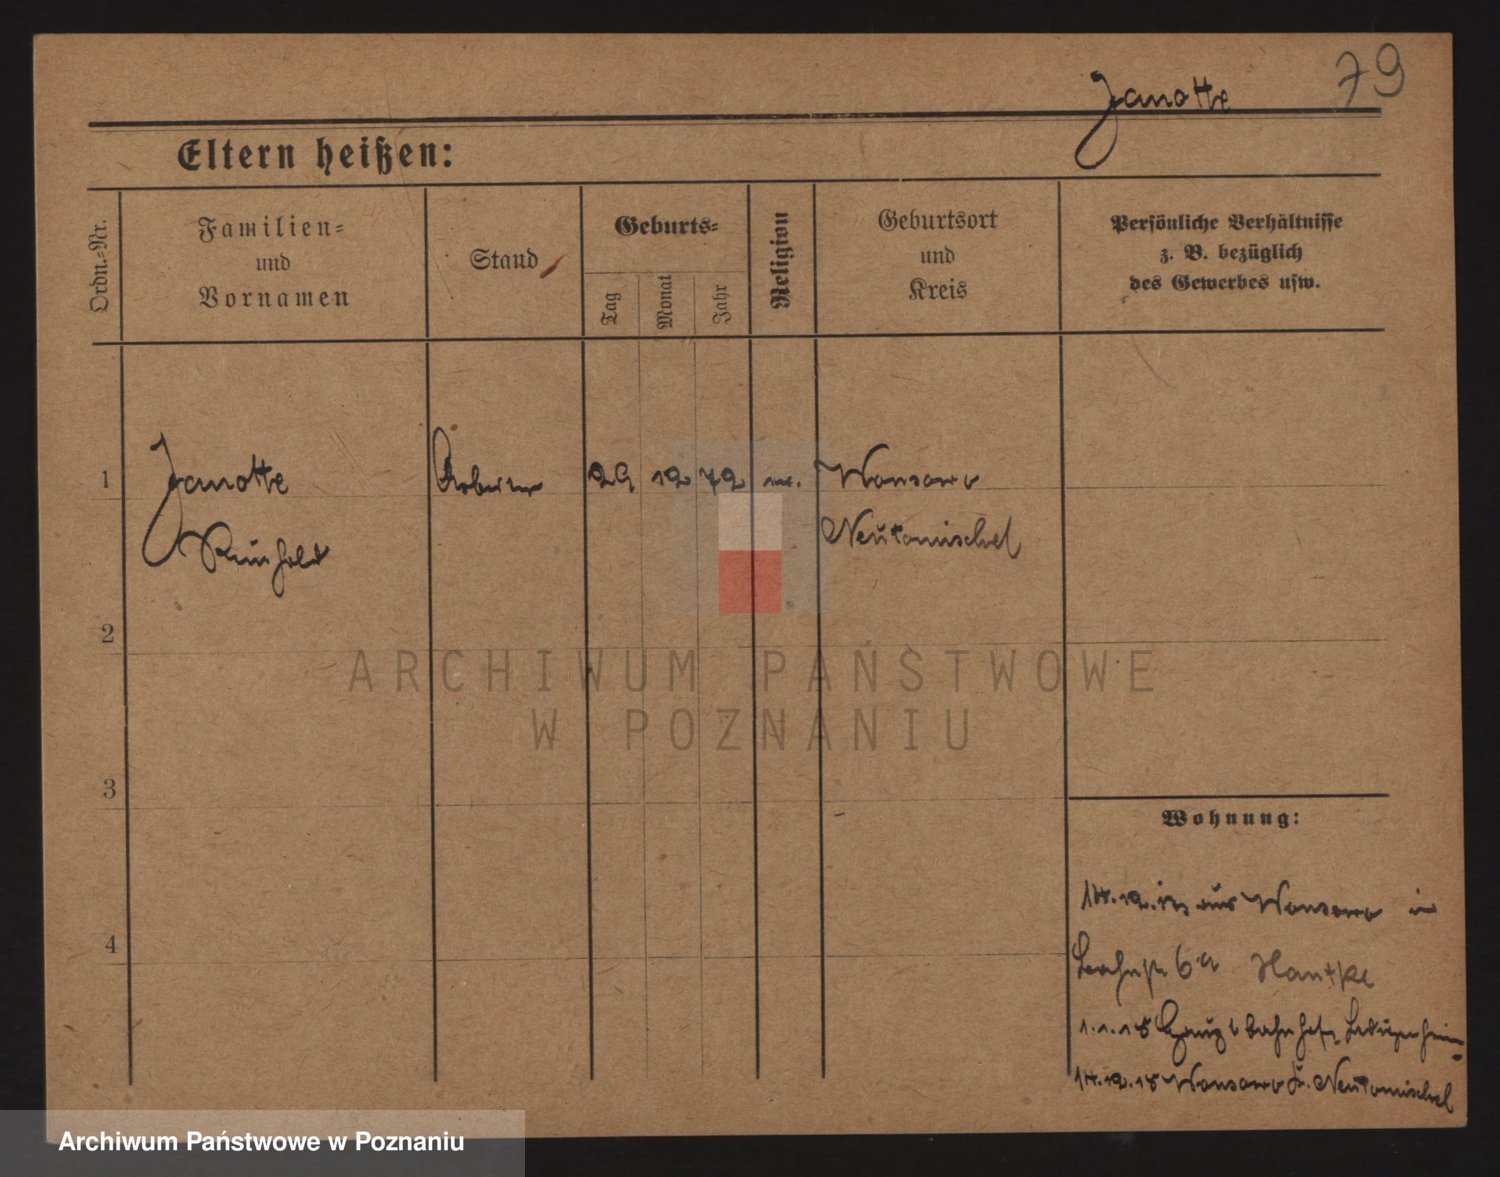 Janotte 79
Eltern heißen:
Ordn.-Nr.
Familien-
und
Vornamen
Stand
Geburts-
Tag
Monat
Jahr
Religion
Geburtsort
und
Kreis
Persönliche Verhältnisse
z. B. bezüglich
des Gewerbes usw.
1 Janotte Arbeiter 29 12 72 Wonsowo
Reinhold Neutomischel
2
3
4
Wohnung:
14.12. aus Wonsowo in
Bahnstr 6a
1.1.15
14.12.15 Wonsowo Kr. Neutomischel
ARCHIWUM PAŃSTWOWE
W POZNANIU
Archiwum Państwowe w Poznaniu